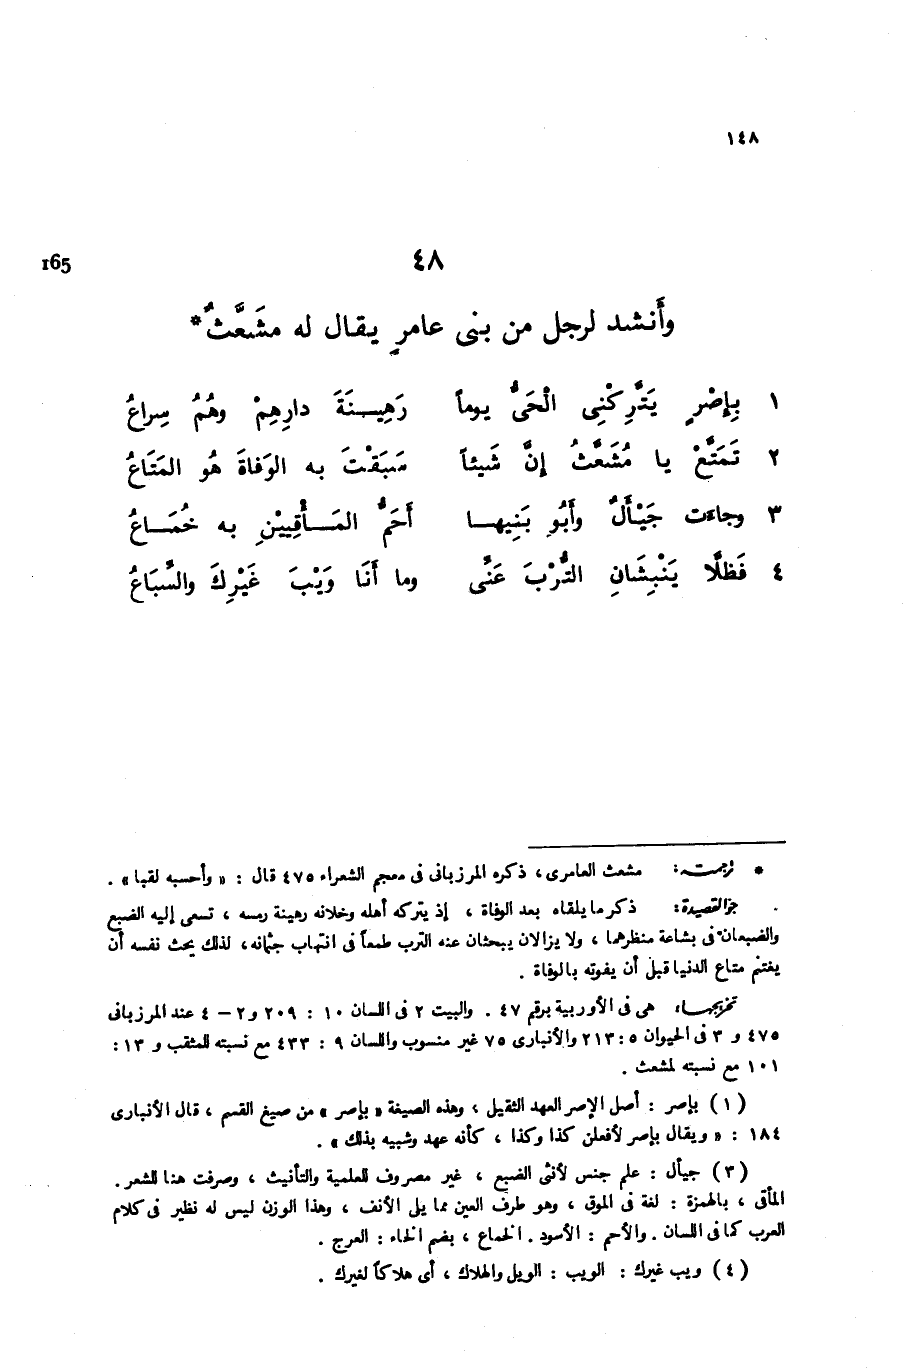 ١٤٨
165
٤٨
وأَنشد لرجل من بنى عامرٍ يقال له مشَعَّثٌ*
١ بِإِصْرٍ يَتَّرِكْنِى الْحَىُّ يوماً رَهِيـنَةَ دارِهِمْ وهُمُ سِراعُ
٢ تَمَتَّعْ يا مُشَعَّثُ إِنَّ شَيئاً سَبَقْتَ به الوَفاةَ هُو المَتَاعُ
٣ وجاءَت جَيْأَلٌ وأَبُو بَنِيهـا أَحَمُّ المَـأْقِيَيْنِ به خُمَـاعُ
٤ فَظلَّا يَنْبِشَانِ التُّرْبَ عَنِّى وما أَنَا وَيْبَ غَيْرِكَ والسِّبَاعُ
* ترجمتـه: مشعث العامرى، ذكره المرزبانى فى معجم الشعراء ٤٧٥ قال : « وأحسبه لقبا » .
جو القصيدة: ذكر ما يلقاه بعد الوفاة ، إذ يتركه أهله وخلانه رهينة رمسه ، تسعى إليه الضبع
والضبعان فى بشاعة منظرهما ، ولا يزالان يبحثان عنه الترب طمعاً فى انتهاب جثمانه، لذلك يحث نفسه أن
يغتنم متاع الدنيا قبل أن يفوته بالوفاة .
تخريجهـا: هى فى الأوربية برقم ٤٧ . والبيت ٢ فى اللسان ١٠ : ٢٠٩ و ٢ – ٤ عند المرزبانى
٤٧٥ و ٣ فى الحيوان ٥ : ٢١٣ والأنبارى ٧٥ غير منسوب واللسان ٩ : ٤٣٣ مع نسبته للمثقب و ١٣ :
١٠١ مع نسبته لمشعث .
( ١ ) بإصر : أصل الإصر العهد الثقيل ، وهذه الصيغة « بإصر » من صيغ القسم ، قال الأنبارى
١٨٤ : « ويقال بإصر لأفعلن كذا وكذا ، كأنه عهد وشبيه بذلك » .
( ٣ ) جيأل : علم جنس لأنثى الضبع ، غير مصروف للعلمية والتأنيث ، وصرفت هنا للشعر .
المأقى ، بالهمزة : لغة فى الموق ، وهو طرف العين مما يلى الأنف ، وهذا الوزن ليس له نظير فى كلام
العرب كما فى اللسان . والأحم : الأسود . الخماع ، بضم الخاء : العرج .
( ٤ ) ويب غيرك : الويب : الويل والهلاك ، أى هلاكاً لغيرك .